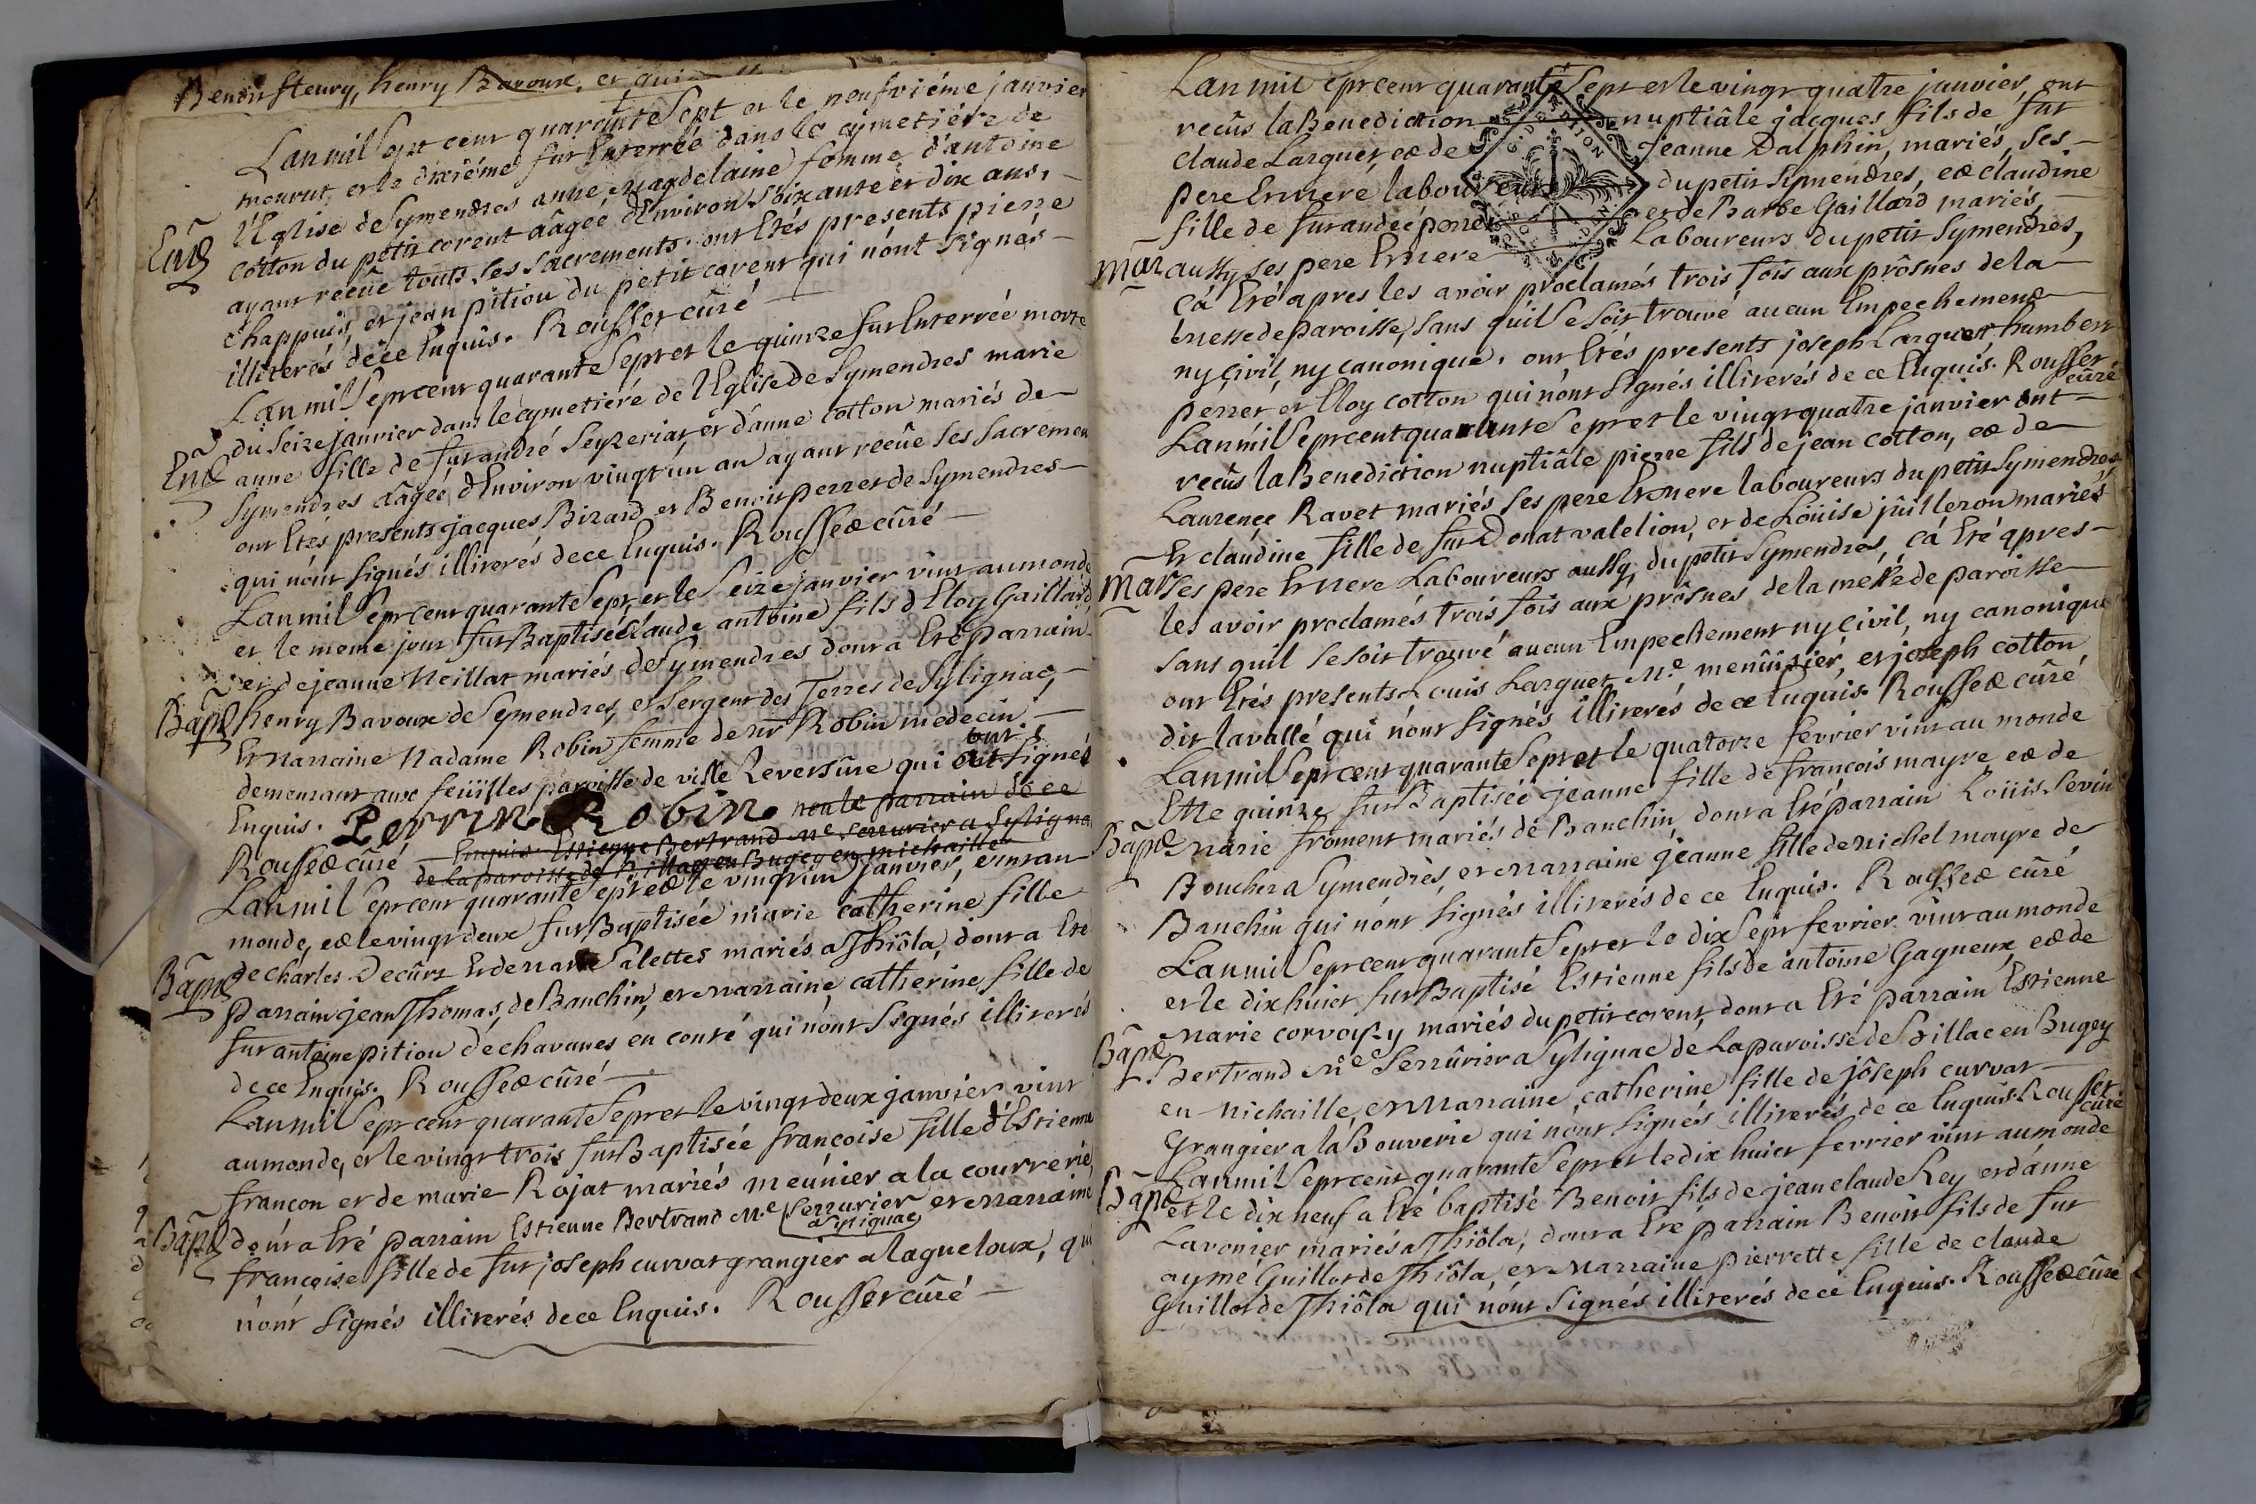 Benoit fleury, henry Bavoux, et qui
Lan mil Sept cent quarante Sept et le neufvieme janvier
mourut, et le dixiéme fut Enterrée dans le cymetiére de
l'Eglise de Symendres anne Magdelaine femme d'antoine
Cotton du petit corent âagée d'Environ Soixante et dix ans,
Ent
ayant reçüe touts ses Sacrements. ont Etés presents pierre
Chappuis, et jean pitiou du petit corent qui n'ont Signés
illiterés de ce Enquis. Rousset cûré
Lan mil Sept cent quarante Sept et le quinze fut Enterrée morte
du Seize janvier dans le cymetiére de l'Eglise de Symendres marie
Ent
anne fille de fut andré Seyzeriat et d'anne Cotton mariés de
Symendres âagée d'Environ vingt un an ayant reçüe ses Sacremen
ont Etés presents jacques Bizard et Benoit perret de Symendres
qui n'ont Signés illiterés de ce Enquis. Rousset cûré
Lan mil Sept cent quarante Sept, et le Seize janvier vint au monde
et le meme jour fut Baptisé Claude antoine fils d'Eloy Gaillard,
et de jeanne Neillat mariés de Symendres dont a Eté parrain
Bapt
henry Bavoux de Symendres, et Sergent des Terres de Sylignac,
Et Marraine Madame Robin femme de Mr Robin medecin
demeurant aux feüilles paroisse de ville Reversure qui ont Signés
ont
Enquis. Perrin Robin non le parrain de ce
Enquis. Estienne Bertrand Me Serrurier a Sylignac
Rousset cûré de la paroisse de Billiac en Bugey en michaille
Lan mil Sept cent quarante Sept et le vingt un janvier, vint au
monde, et le vingt deux fut Baptisée marie catherine fille
de Charles Decûrt Et de marie Palettes mariés a Thiôla, dont a Eté
Bapt
parrain jean Thomas, de Banchin, et marraine catherine fille de
fut antoine pitiou de chavanes en conté qui n'ont Signés illiterés
de ce Enquis. Rousset cûré
Lan mil Sept cent quarante Sept et le vingt deux janvier vint
au monde, et le vingt trois fut Baptisée françoise fille d'Estienne
françon et de marie Rojat mariés meûnier a la courrerie,
Bapt
dont a Eté parrain Estienne Bertrand Me Serrurier et marraine
a Sylignac
françoise fille de fut joseph curvat grangier a lagueloux, qui
n'ont Signés illiterés de ce Enquis. Rousset cûré
Lan mil Sept cent quarante Sept et le vingt quatre janvier, ont
reçûs la Benediction nuptiâle jacques fils de fut
G. DE DIJON
Claude Larguet, et de Jeanne Dalphin, mariés, ses
pere Et mere laboureurs du petit Symendres, et claudine
fille de fut andré perret et de Barbe Gaillard mariés,
Mar
aussy ses pere Et mere Laboureurs du petit Symendres,
ça Eté apres les avoir proclamés trois fois aux prôsnes de la
messe de paroisse, sans qu'il se soit trouvé aucun Empechement
ny Civil, ny canonique. ont Etés presents joseph Larguet, humbert
perret et Eloy cotton qui n'ont Signés illiterés de ce Enquis. Rousset
cûré
Lan mil Sept cent quarante Sept et le vingt quatre janvier ont
reçûs la Benediction nuptiâle pierre fils de jean cotton, et de
Laurence Ravet mariés ses pere Et mere laboureurs du petit Symendres,
Et claudine fille de fut Donat valelion, et de Loüise jûilleron mariés
Mar
Ses pere Et mere Laboureurs aussy du petit Symendres, ça Eté apres
les avoir proclamés trois fois aux prôsnes de la messe de paroisse
sans qu'il se soit trouvé aucun Empechement ny civil, ny canonique
ont Etés presents Louis Larguet Me menüisier, et joseph cotton
dit lavallé qui n'ont Signés illiterés de ce Enquis. Rousset cûré
Lan mil Sept cent quarante Sept et le quatorze fevrier vint au monde
Et le quinze fut Baptisée jeanne fille de françois mayre et de
Bapt
Marie froment mariés de Banchin, dont a Eté parrain Loüis Sevin
Boucher a Symendres, et marraine jeanne fille de michel mayre de
Banchin qui n'ont Signés illiterés de ce Enquis. Rousset cûré
Lan mil Sept cent quarante Sept et le dix Sept fevrier vint au monde
et le dix huict fut Baptisé Estienne fils de antoine Gagneux, et de
Marie corvoisy mariés du petit corent, dont a Eté parrain Estienne
Bapt
Bertrand Me Serrûrier a Sylignac de la paroisse de Billiac en Bugey
en Michaille, et Marraine, catherine fille de jôseph curvat
Grangier a la Bouverie qui n'ont Signés illiterés de ce Enquis Rousset
cûré
Lan mil Sept cent quarante Sept et le dix huict fevrier vint au monde
Bapt
et le dix neuf a Eté baptisé Benoit fils de jean claude Rey et d'anne
Lavonier mariés a Thiôla, dont a Eté parrain Benoît fils de fut
aymé Guillot de Thiôla, et Marraine pierrette fille de claude
Guillot de Thiôla qui n'ont Signés illiterés de ce Enquis. Rousset cûré